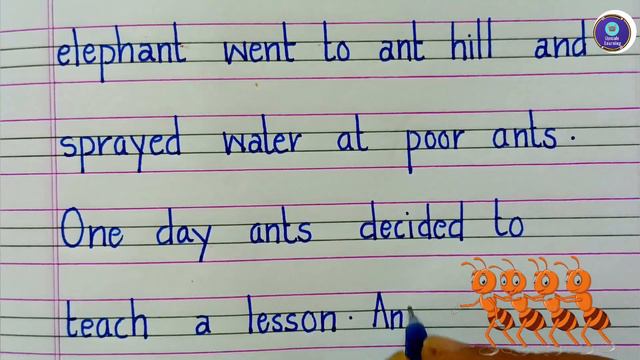 elephant went to ant hill and
sprayed water at poor ants.
One day ants decided to
teach a lesson. An